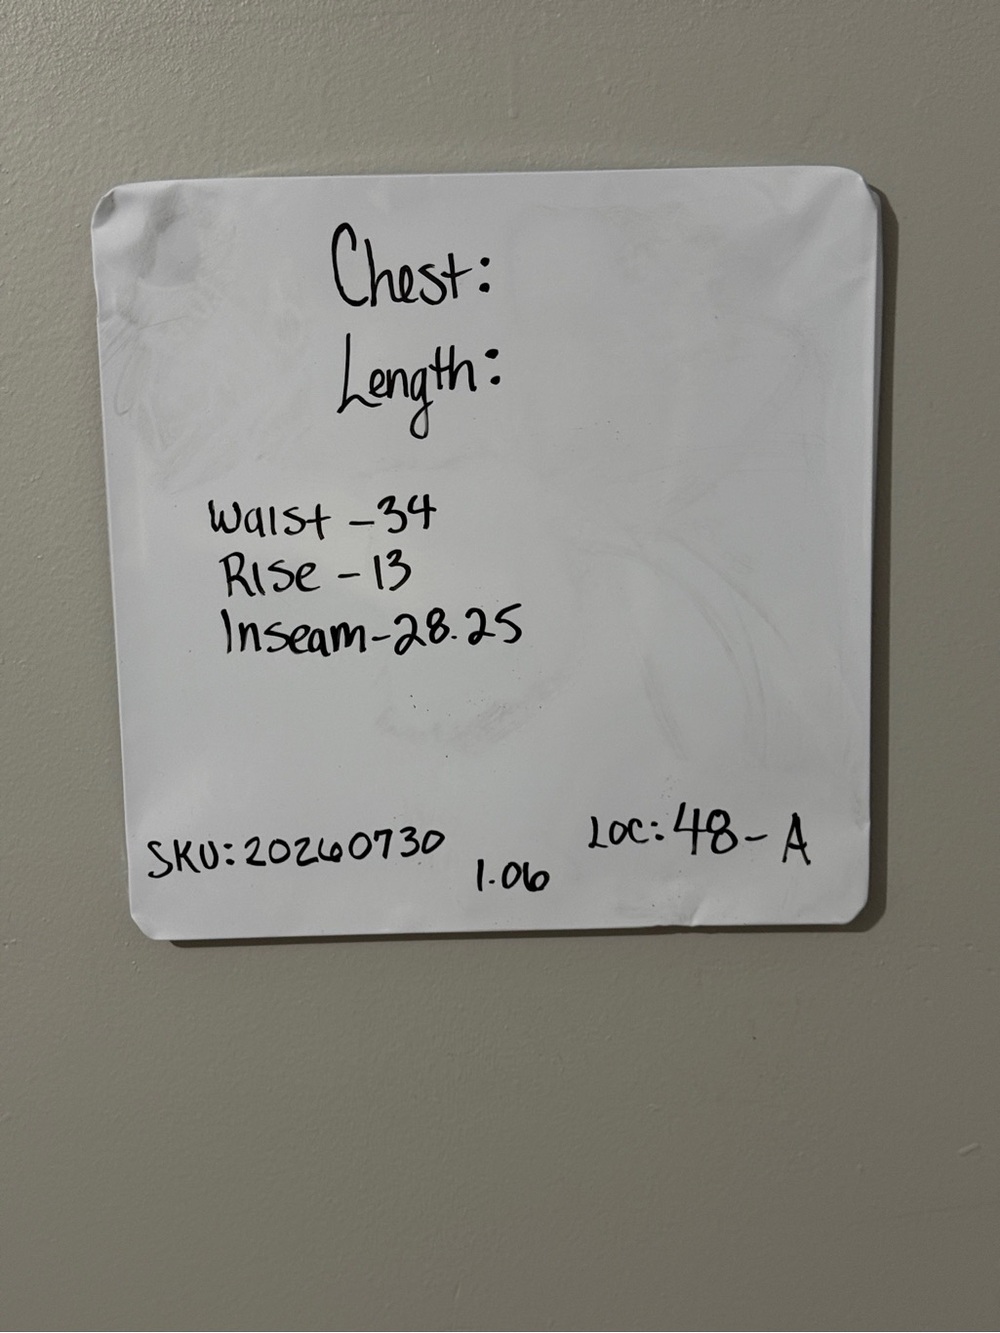 Chest:
Length:
Waist - 34
Rise - 13
Inseam - 28.25
SKU: 20260730
1.06
LOC: 48 - A